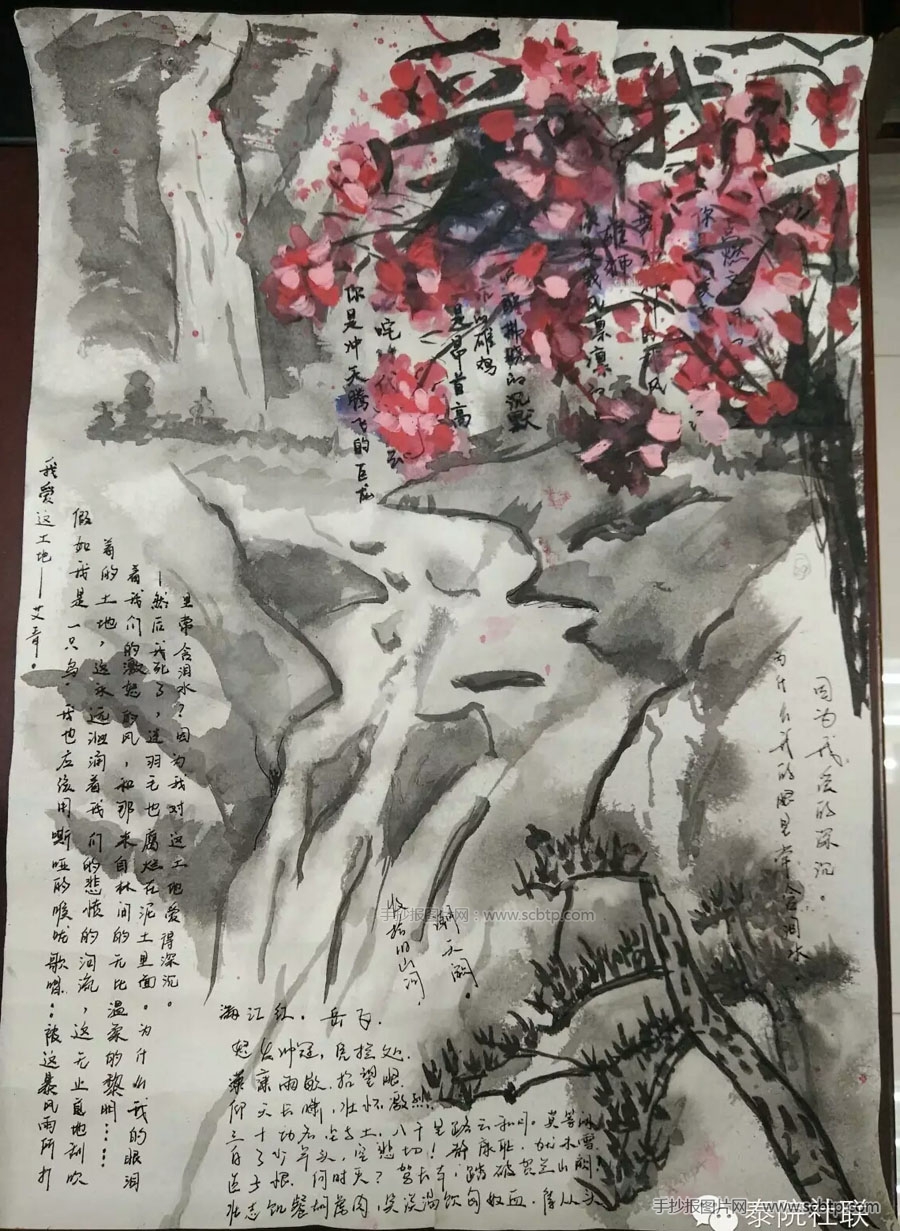 我
你是冲天腾飞的巨龙
是昂首高
雄鸡
的沉默
雄狮
点燃
因为我爱的深沉。
为什么我的眼里常含泪水
我爱这土地——艾青。
假如我是一只鸟,我也应该用嘶哑的喉咙歌唱:被这暴风雨所打
着的土地,这永远汹涌着我们的悲愤的河流,这无止息地刮吹
着我们的激怒的风,和那来自林间的无比温柔的黎明……
——然后我死了,连羽毛也腐烂在泥土里面。为什么我的眼泪
里常含泪水?因为我对这土地爱得深沉。
收拾旧山河,
朝天阙。
手抄报图片网 - www.scbtp.com
满江红.岳飞.
怒发冲冠,凭栏处.
潇雨歇.抬望眼.
仰天长啸,壮怀激烈.
三十功名尘与土,八千里路云和月。莫等闲
白了少年头,空悲切!靖康耻,犹未雪
臣子恨,何时灭?驾长车,踏破贺兰山阙!
壮志饥餐胡虏肉,笑谈渴饮匈奴血.待从头
手抄报图片网 - www.scbtp.com
泰院社联